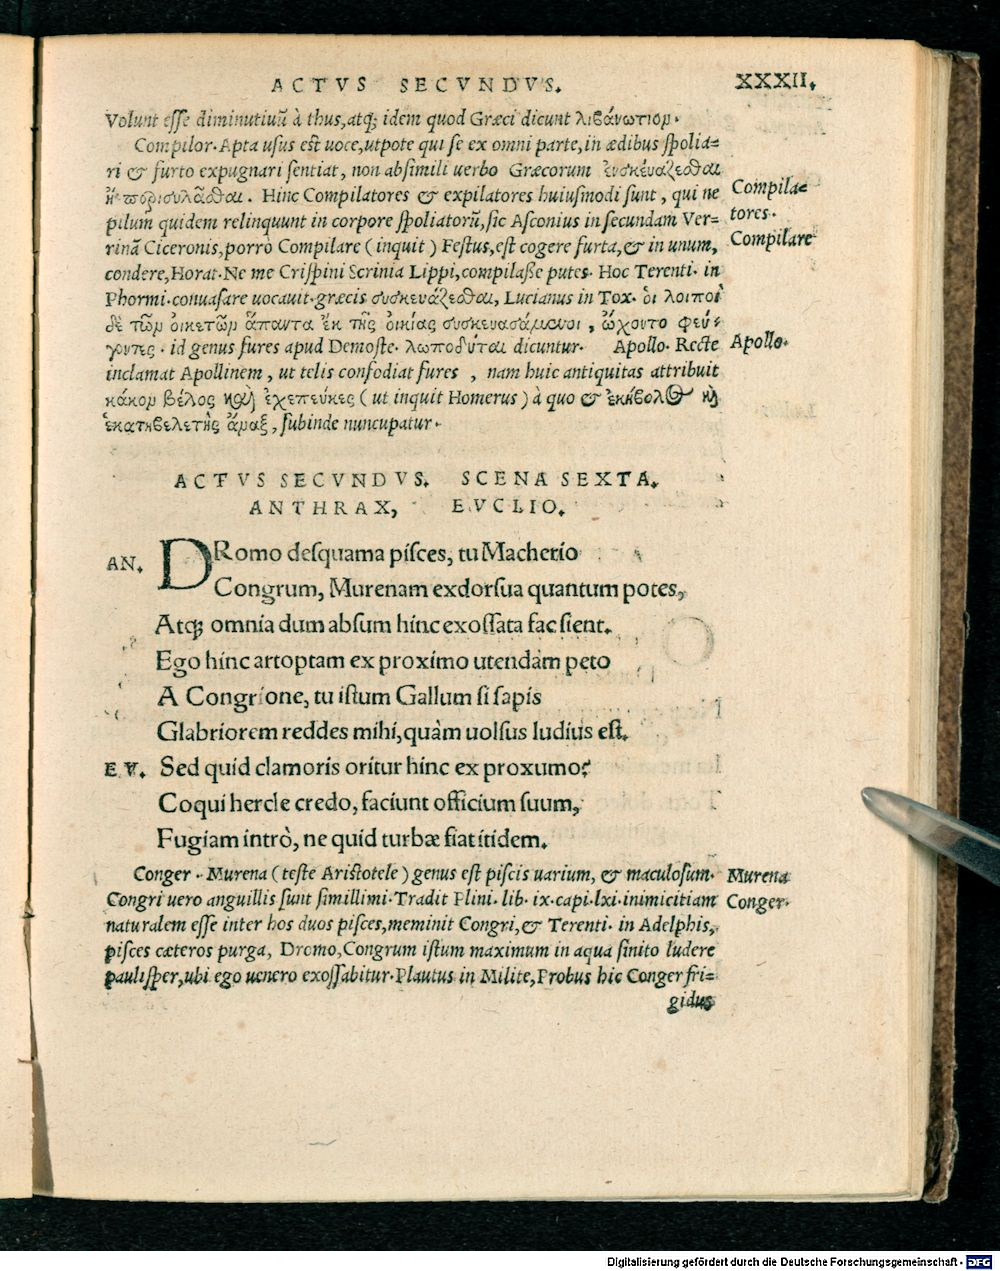 ACTVS SECVNDVS. XXXII.
Volunt esse diminutiuũ à thus, atq; idem quod Græci dicunt λιβάνωτιον.
Compilor. Apta usus est uoce, utpote qui se ex omni parte, in ædibus spolia=
ri & furto expugnari sentiat, non absimili uerbo Græcorum ἐνσκευάζεσθαι
ἢ περισυλᾶσθαι. Hinc Compilatores & expilatores huiusmodi sunt, qui ne
Compila=
tores.
pilum quidem relinquunt in corpore spoliatorũ, sic Asconius in secundam Ver=
rinã Ciceronis, porrò Compilare (inquit) Festus, est cogere furta, & in unum,
Compilare
condere, Horat. Ne me Crispini Scrinia Lippi, compilaße putes. Hoc Terenti. in
Phormi. conuasare uocauit. græcis συσκευάζεσθαι, Lucianus in Tox. ὁι λοιποὶ
δὲ τῶν ὀικετῶν ἅπαντα ἐκ τῆς ὀικίας συσκευασάμενοι, ὤχοντο φεύ=
γοντες. id genus fures apud Demoste. λωποδύται dicuntur. Apollo. Recte
Apollo.
inclamat Apollinem, ut telis confodiat fures, nam huic antiquitas attribuit
κάκον βέλος καὶ ἐχεπεύκες (ut inquit Homerus) à quo & ἑκήβολος καὶ
ἑκατηβελετὴς ἄναξ, subinde nuncupatur.
ACTVS SECVNDVS. SCENA SEXTA.
ANTHRAX, EVCLIO.
AN. DRomo desquama pisces, tu Macherio
Congrum, Murenam exdorsua quantum potes,
Atq; omnia dum absum hinc exossata fac sient.
Ego hinc artoptam ex proximo utendam peto
A Congrione, tu istum Gallum si sapis
Glabriorem reddes mihi, quàm uolsus ludius est.
EV. Sed quid clamoris oritur hinc ex proxumo?
Coqui hercle credo, faciunt officium suum,
Fugiam intrò, ne quid turbæ fiat itidem.
Conger. Murena (teste Aristotele) genus est piscis uarium, & maculosum.
Murena
Congri uero anguillis sunt simillimi. Tradit Plini. lib. ix. capi. lxi. inimicitiam
Conger.
naturalem esse inter hos duos pisces, meminit Congri, & Terenti. in Adelphis,
pisces cæteros purga, Dromo, Congrum istum maximum in aqua sinito ludere
paulisper, ubi ego uenero exossabitur. Plautus in Milite, Probus hic Conger fri=
gidus
Digitalisierung gefördert durch die Deutsche Forschungsgemeinschaft - DFG